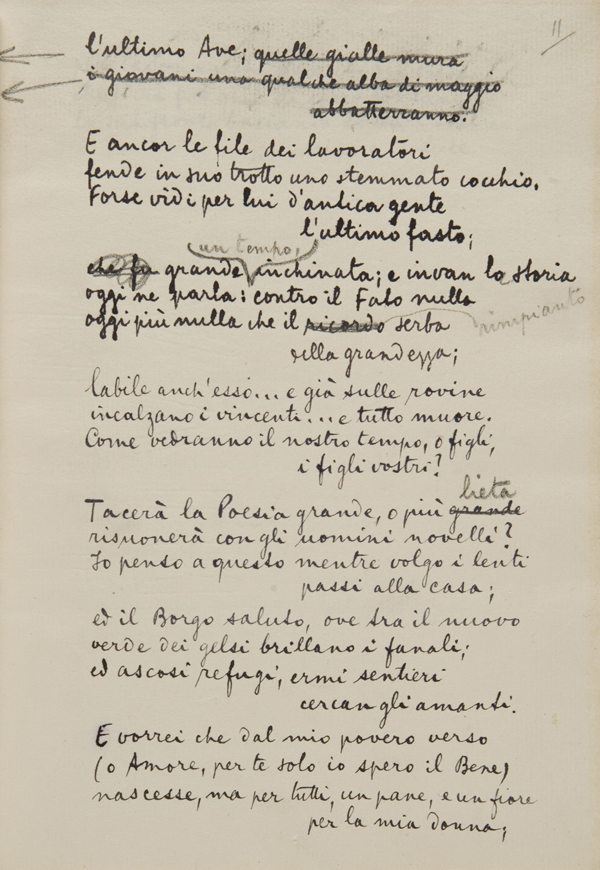 11
l'ultimo Ave; quelle gialle mura
i giovani una qualche alba di maggio
abbatterranno.
E ancor le file dei lavoratori
fende in suo trotto uno stemmato cocchio.
Forse vidi per lui d'antica gente
l'ultimo fasto;
un tempo,
che fu grande inchinata; e invan la storia
oggi ne parla: contro il Fato nulla
oggi più nulla che il ricordo serba
rimpianto
della grandezza;
labile anch'esso... e già sulle rovine
incalzano i vincenti... e tutto muore.
Come vedranno il nostro tempo, o figli,
i figli vostri?
lieta
Tacerà la Poesia grande, o più grande
risuonerà con gli uomini novelli?
Io penso a questo mentre volgo i lenti
passi alla casa;
ed il Borgo saluto, ove tra il nuovo
verde dei gelsi brillano i fanali;
ed ascosi refugi, ermi sentieri
cercan gli amanti.
E vorrei che dal mio povero verso
(o Amore, per te solo io spero il Bene)
nascesse, ma per tutti, un pane, e un fiore
per la mia donna;